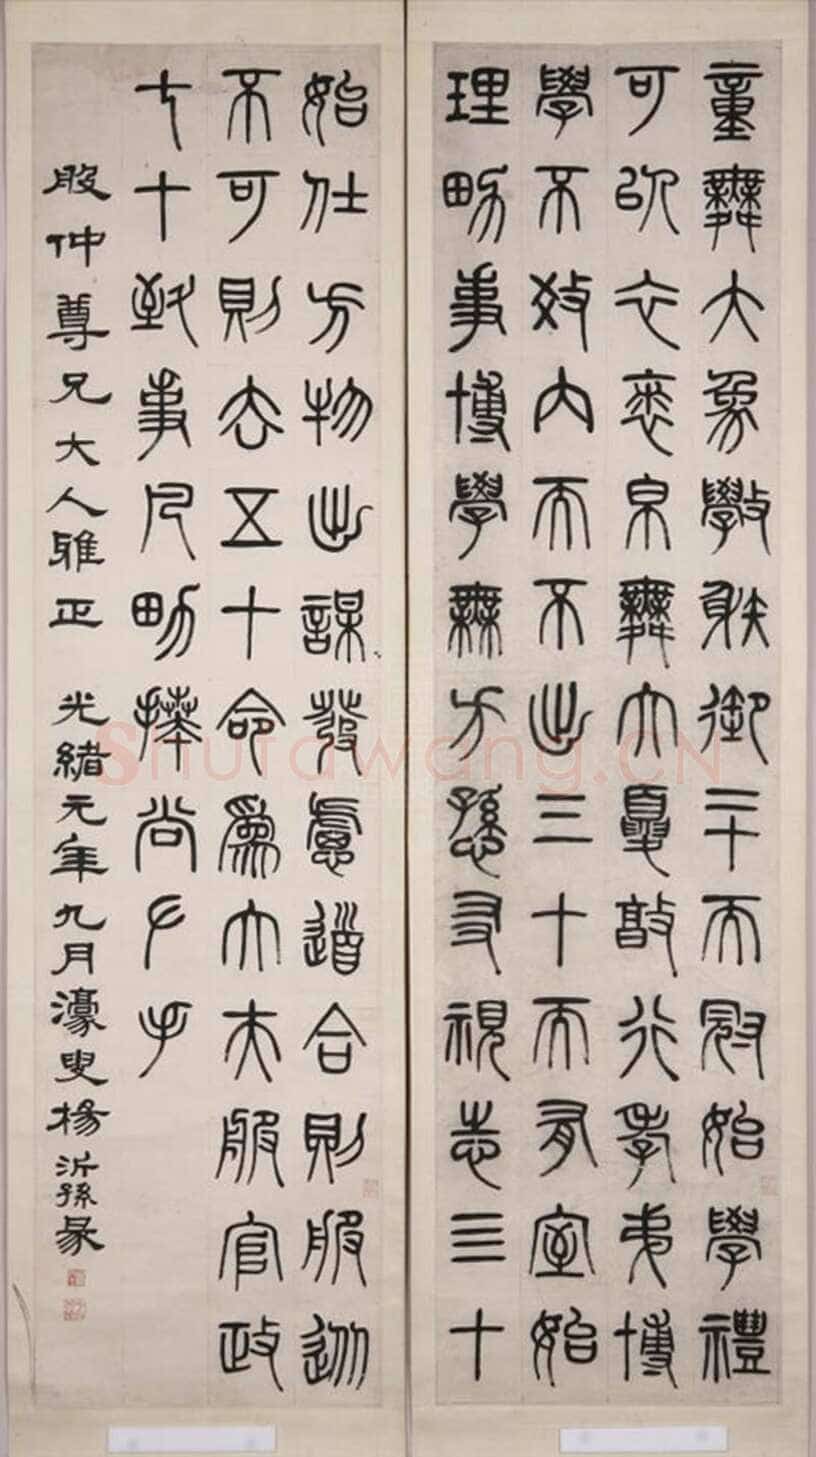 童舞大象斆射御二十而冠始學禮
可以衣裘帛舞大夏敦行孝弟博
學不教內而不出三十而有室始
理男事博學無方孫友視志四十
始仕方物出謀發慮道合則服從
不可則去五十命為大夫服官政
七十致事凡男拜尚左手
仲尊兄大人雅正 光緒元年九月濠叟楊沂孫篆
Shufawang.CN